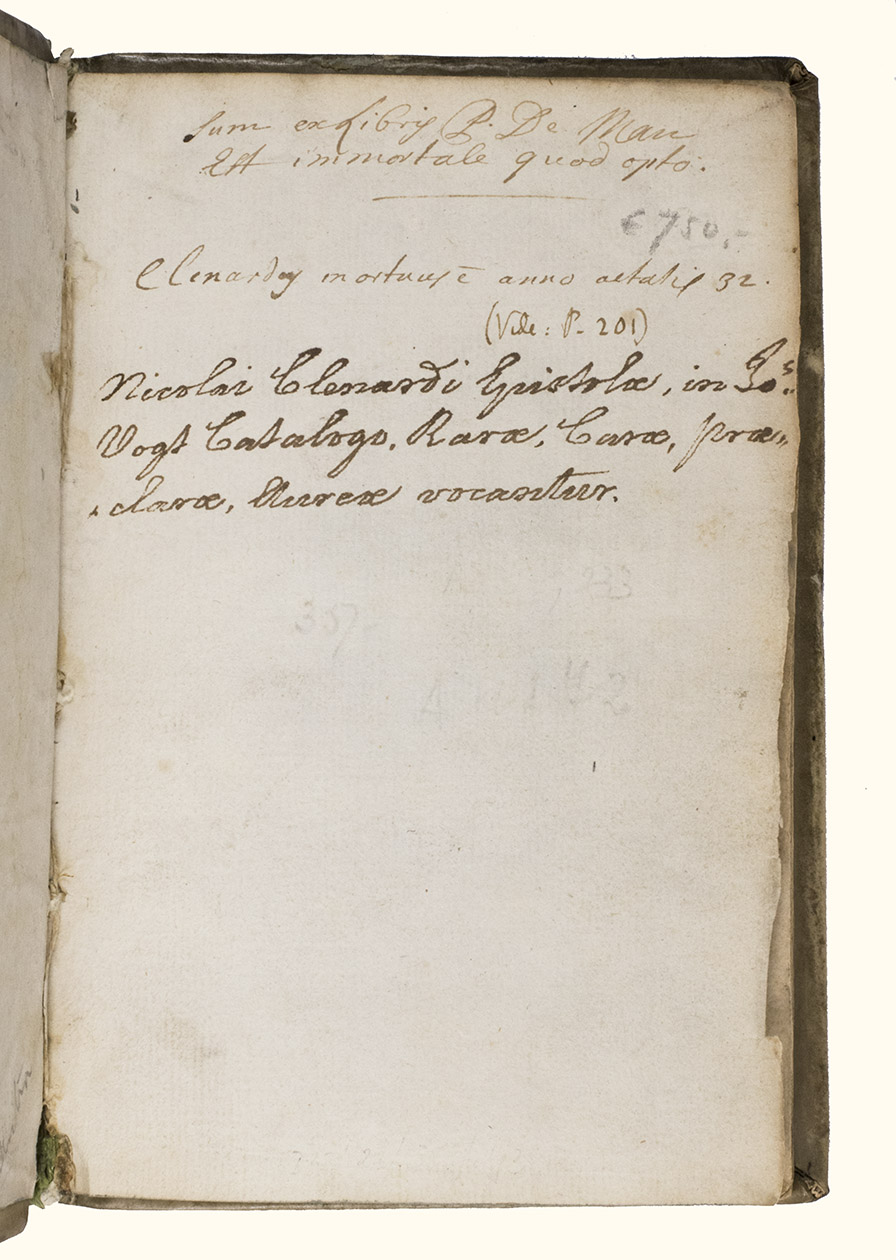 Sum ex Libris P. De Mau
Est immortale quod opto.
€ 750,-
Clenardus mortuus ē anno aetatis 32.
(Vide: P. 201)
Nicolai Clenardi Epistolæ, in Jo.s
Vogt Catalogo, Raræ, Caræ, præ„
„claræ, Aureæ vocantur.
233
357-